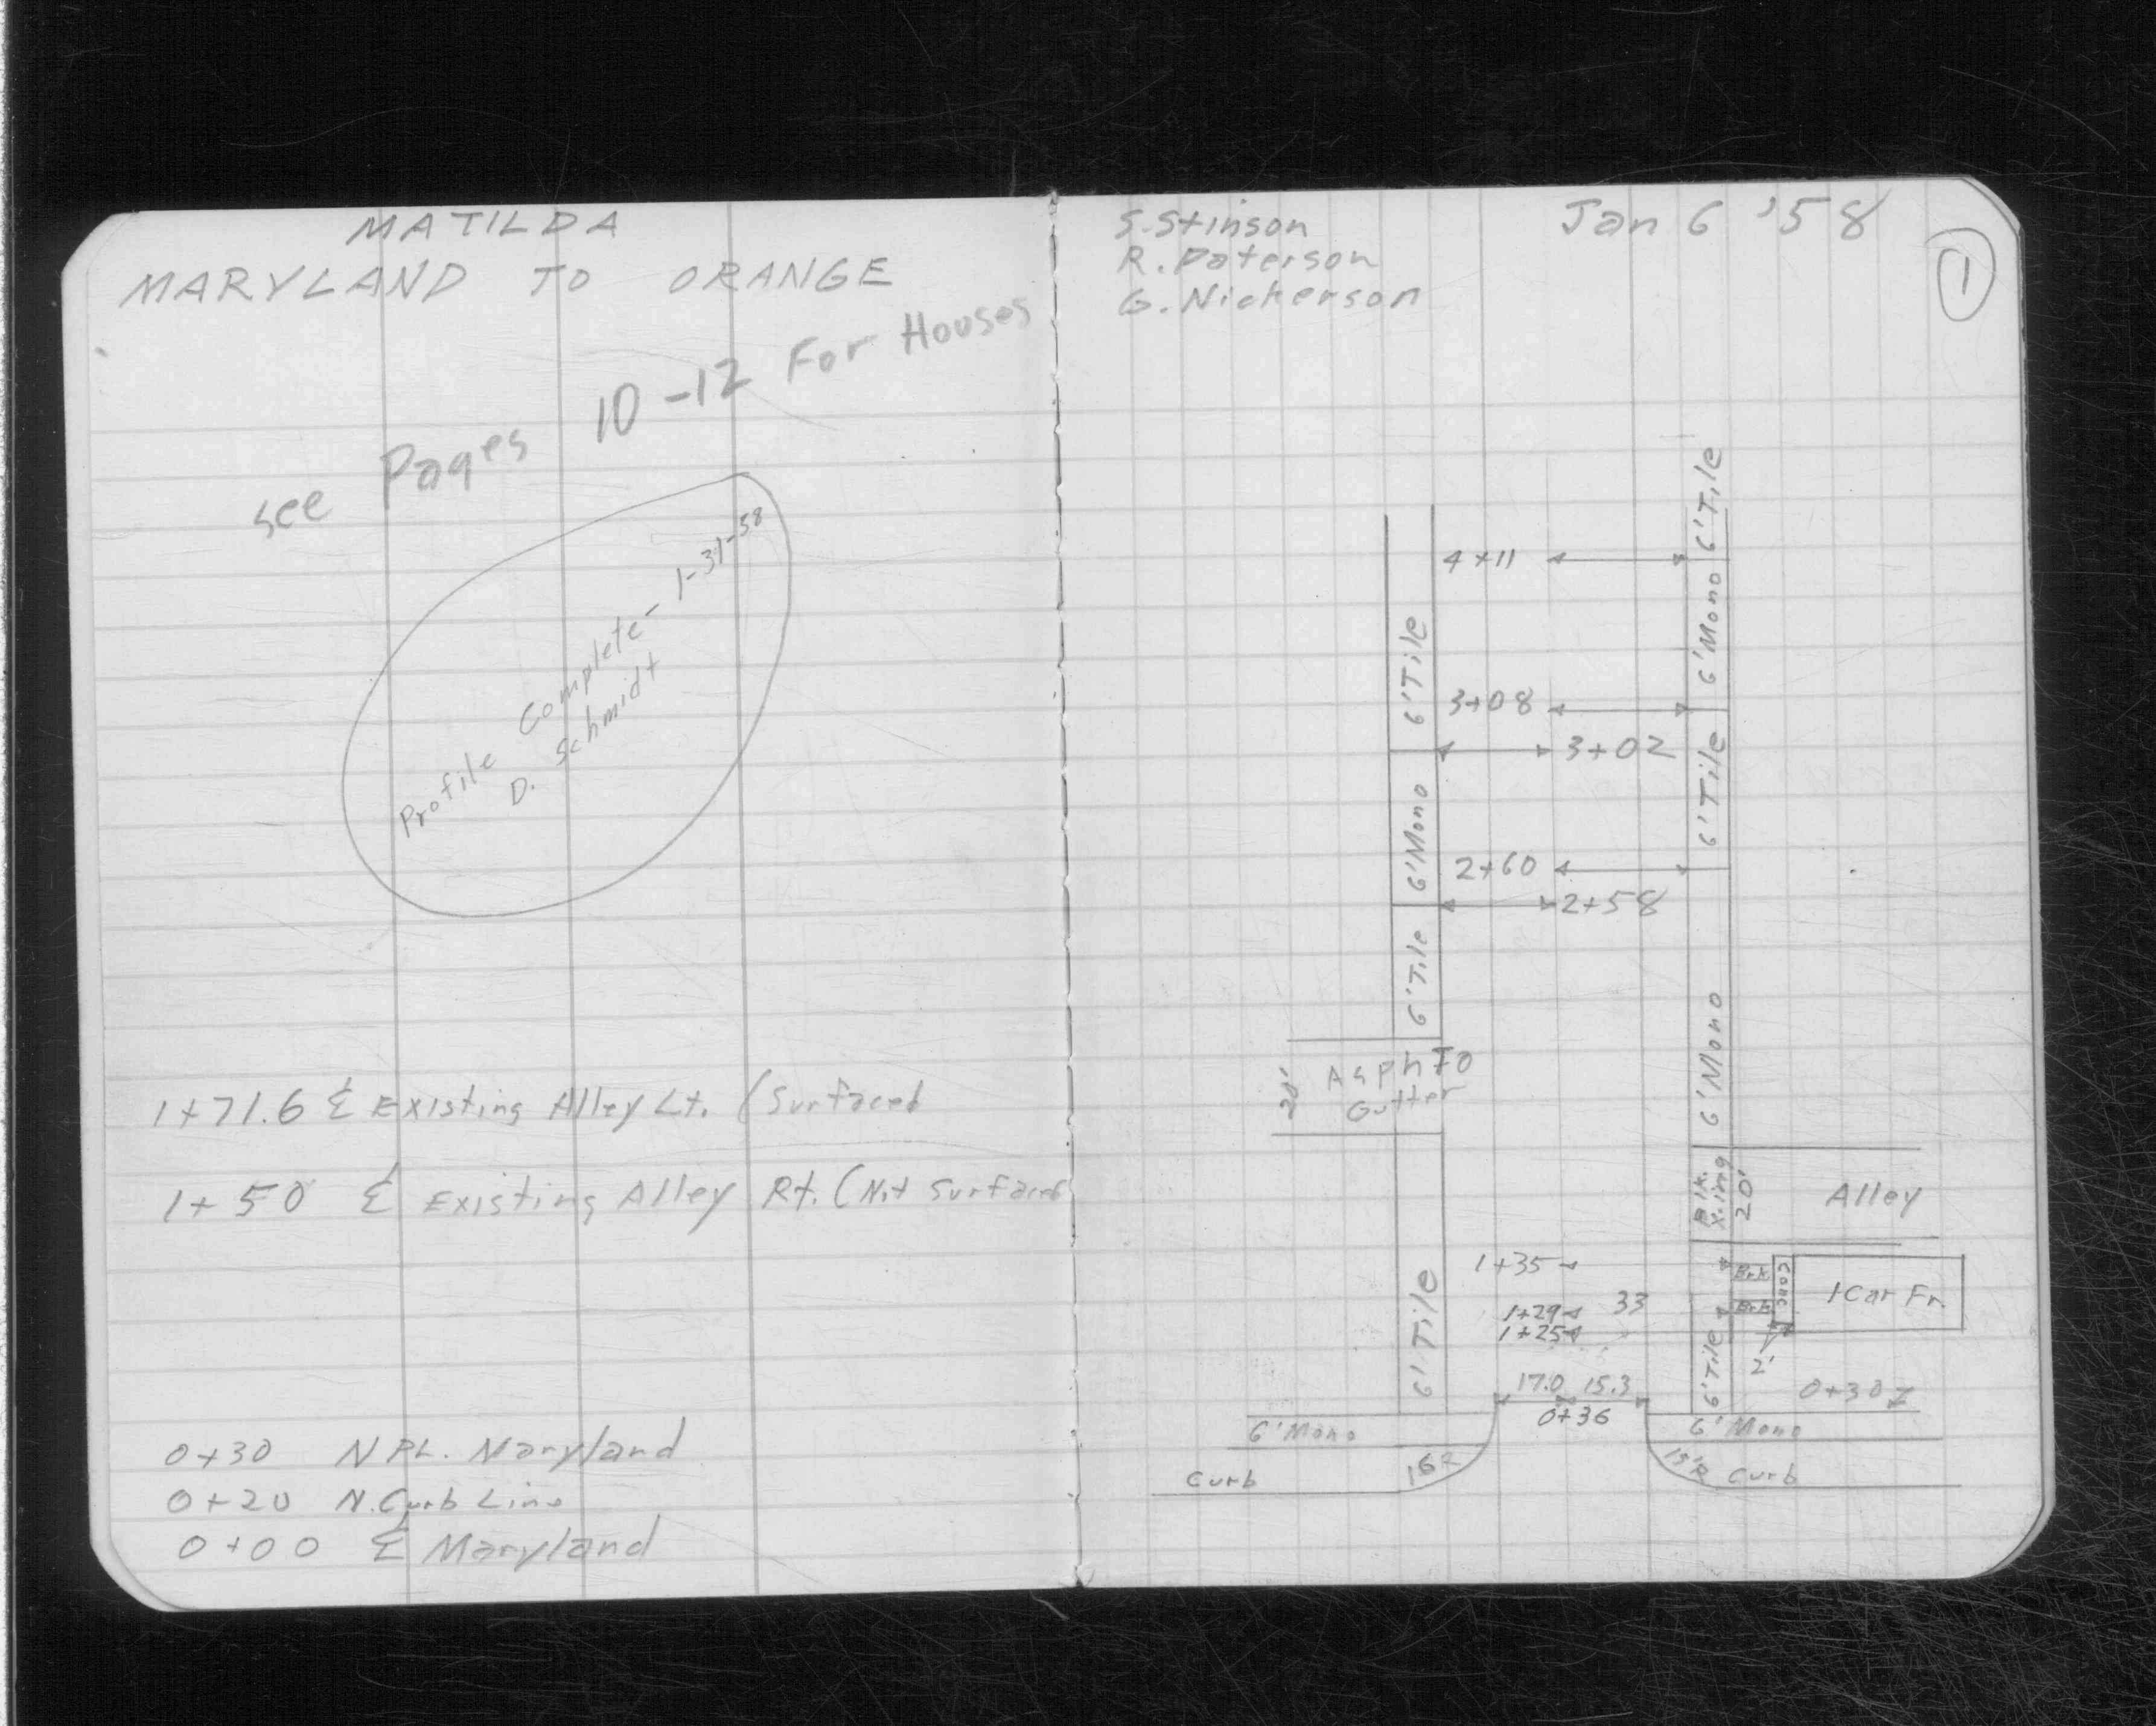 MATILDA
MARYLAND TO ORANGE
see Pages 10-12 For Houses
Profile Complete- 1-31-58
D. Schmidt
1+71.6 ℄ Existing Alley Lt. (Surfaced
1+50 ℄ Existing Alley Rt. (Not Surfaced
0+30 N PL. Maryland
0+20 N. Curb Line
0+00 ℄ Maryland
S. Stinson
R. Paterson
G. Nickerson
Jan 6 '58
1
6' Tile
4+11
6' Mono
6' Tile
3+08
3+02
6' Tile
6' Mono
2+60
2+58
6' Tile
6' Mono
20'
Asph To
Gutter
Blk.
X.ing
20'
Alley
1+35
Brk
Conc
1 Car Fr.
1+29
33
Brk
1+25
6' Tile
6' Tile
2'
17.0 15.3
0+36
0+30
6' Mono
6' Mono
Curb
16R
15'R
Curb